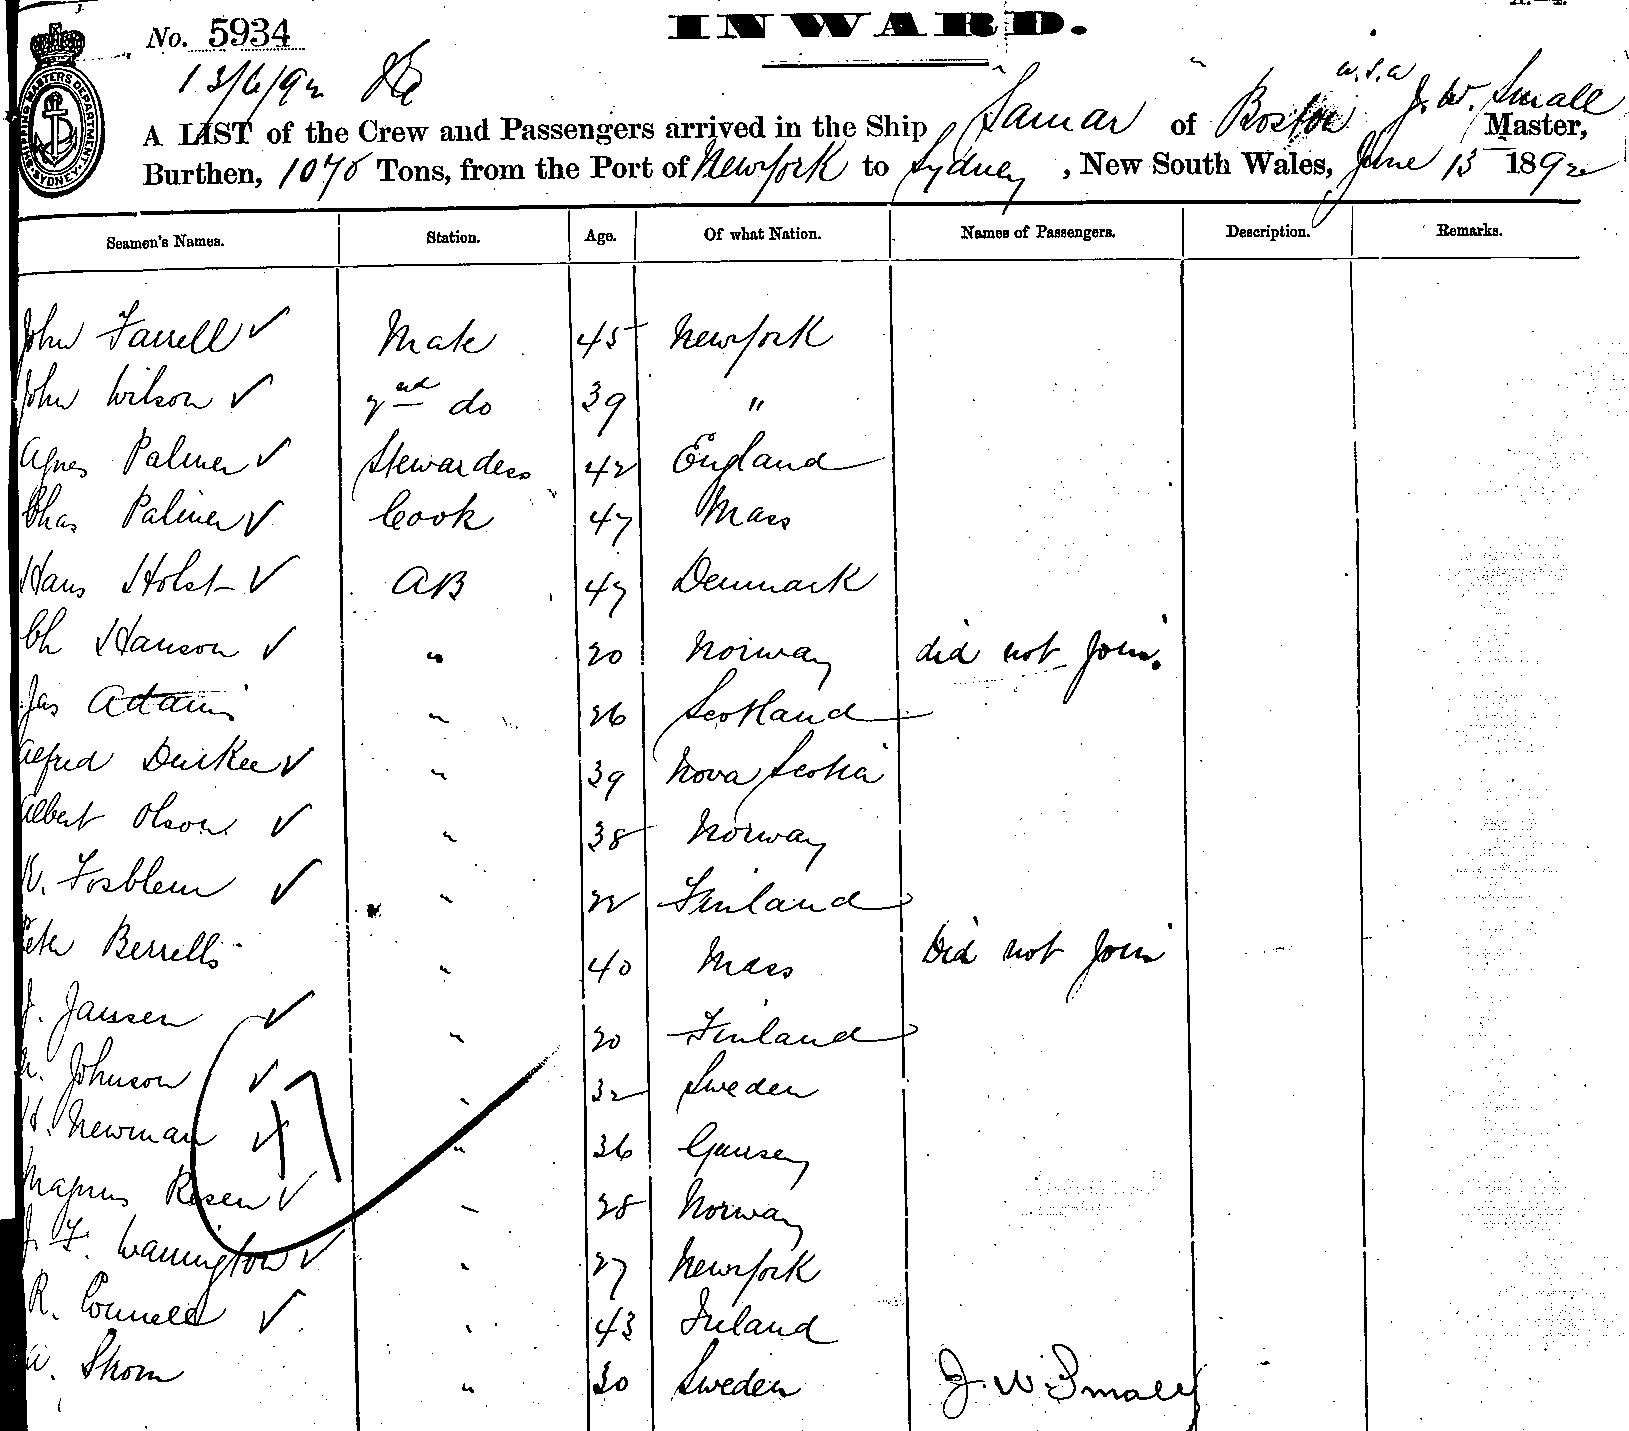 No. 5934
INWARD.
13/6/92
U.S.A
A LIST of the Crew and Passengers arrived in the Ship Samar of Boston J. W. Small Master,
Burthen, 1076 Tons, from the Port of Newyork to Sydney, New South Wales, June 13 1892
SHIPPING MASTERS DEPARTMENT SYDNEY
Seamen's Names. Station. Age. Of what Nation. Names of Passengers. Description. Remarks.
John Farrell ✓ Mate 45 Newyork
John Wilson ✓ 2nd do 39 "
Agnes Palmer ✓ Stewardess 42 England
Chas Palmer ✓ Cook 47 Mass
Hans Holst ✓ AB 47 Denmark
Ch Hanson ✓ " 20 Norway did not join.
Jas Adams " 26 Scotland
Alfred Durkee ✓ " 39 Nova Scotia
Albert Olson ✓ " 38 Norway
Fosblem ✓ " 22 Finland
Peter Berrells " 40 Mass Did not join
J. Jansen ✓ " 20 Finland
Johnson ✓ " 32 Sweden
H. Newman ✓ " 36 Gunsey
Magnus Rosen ✓ " 28 Norway
J. F. Warrington ✓ " 27 Newyork
R. Connell ✓ " 43 Ireland
Skom " 30 Sweden
J. W. Small